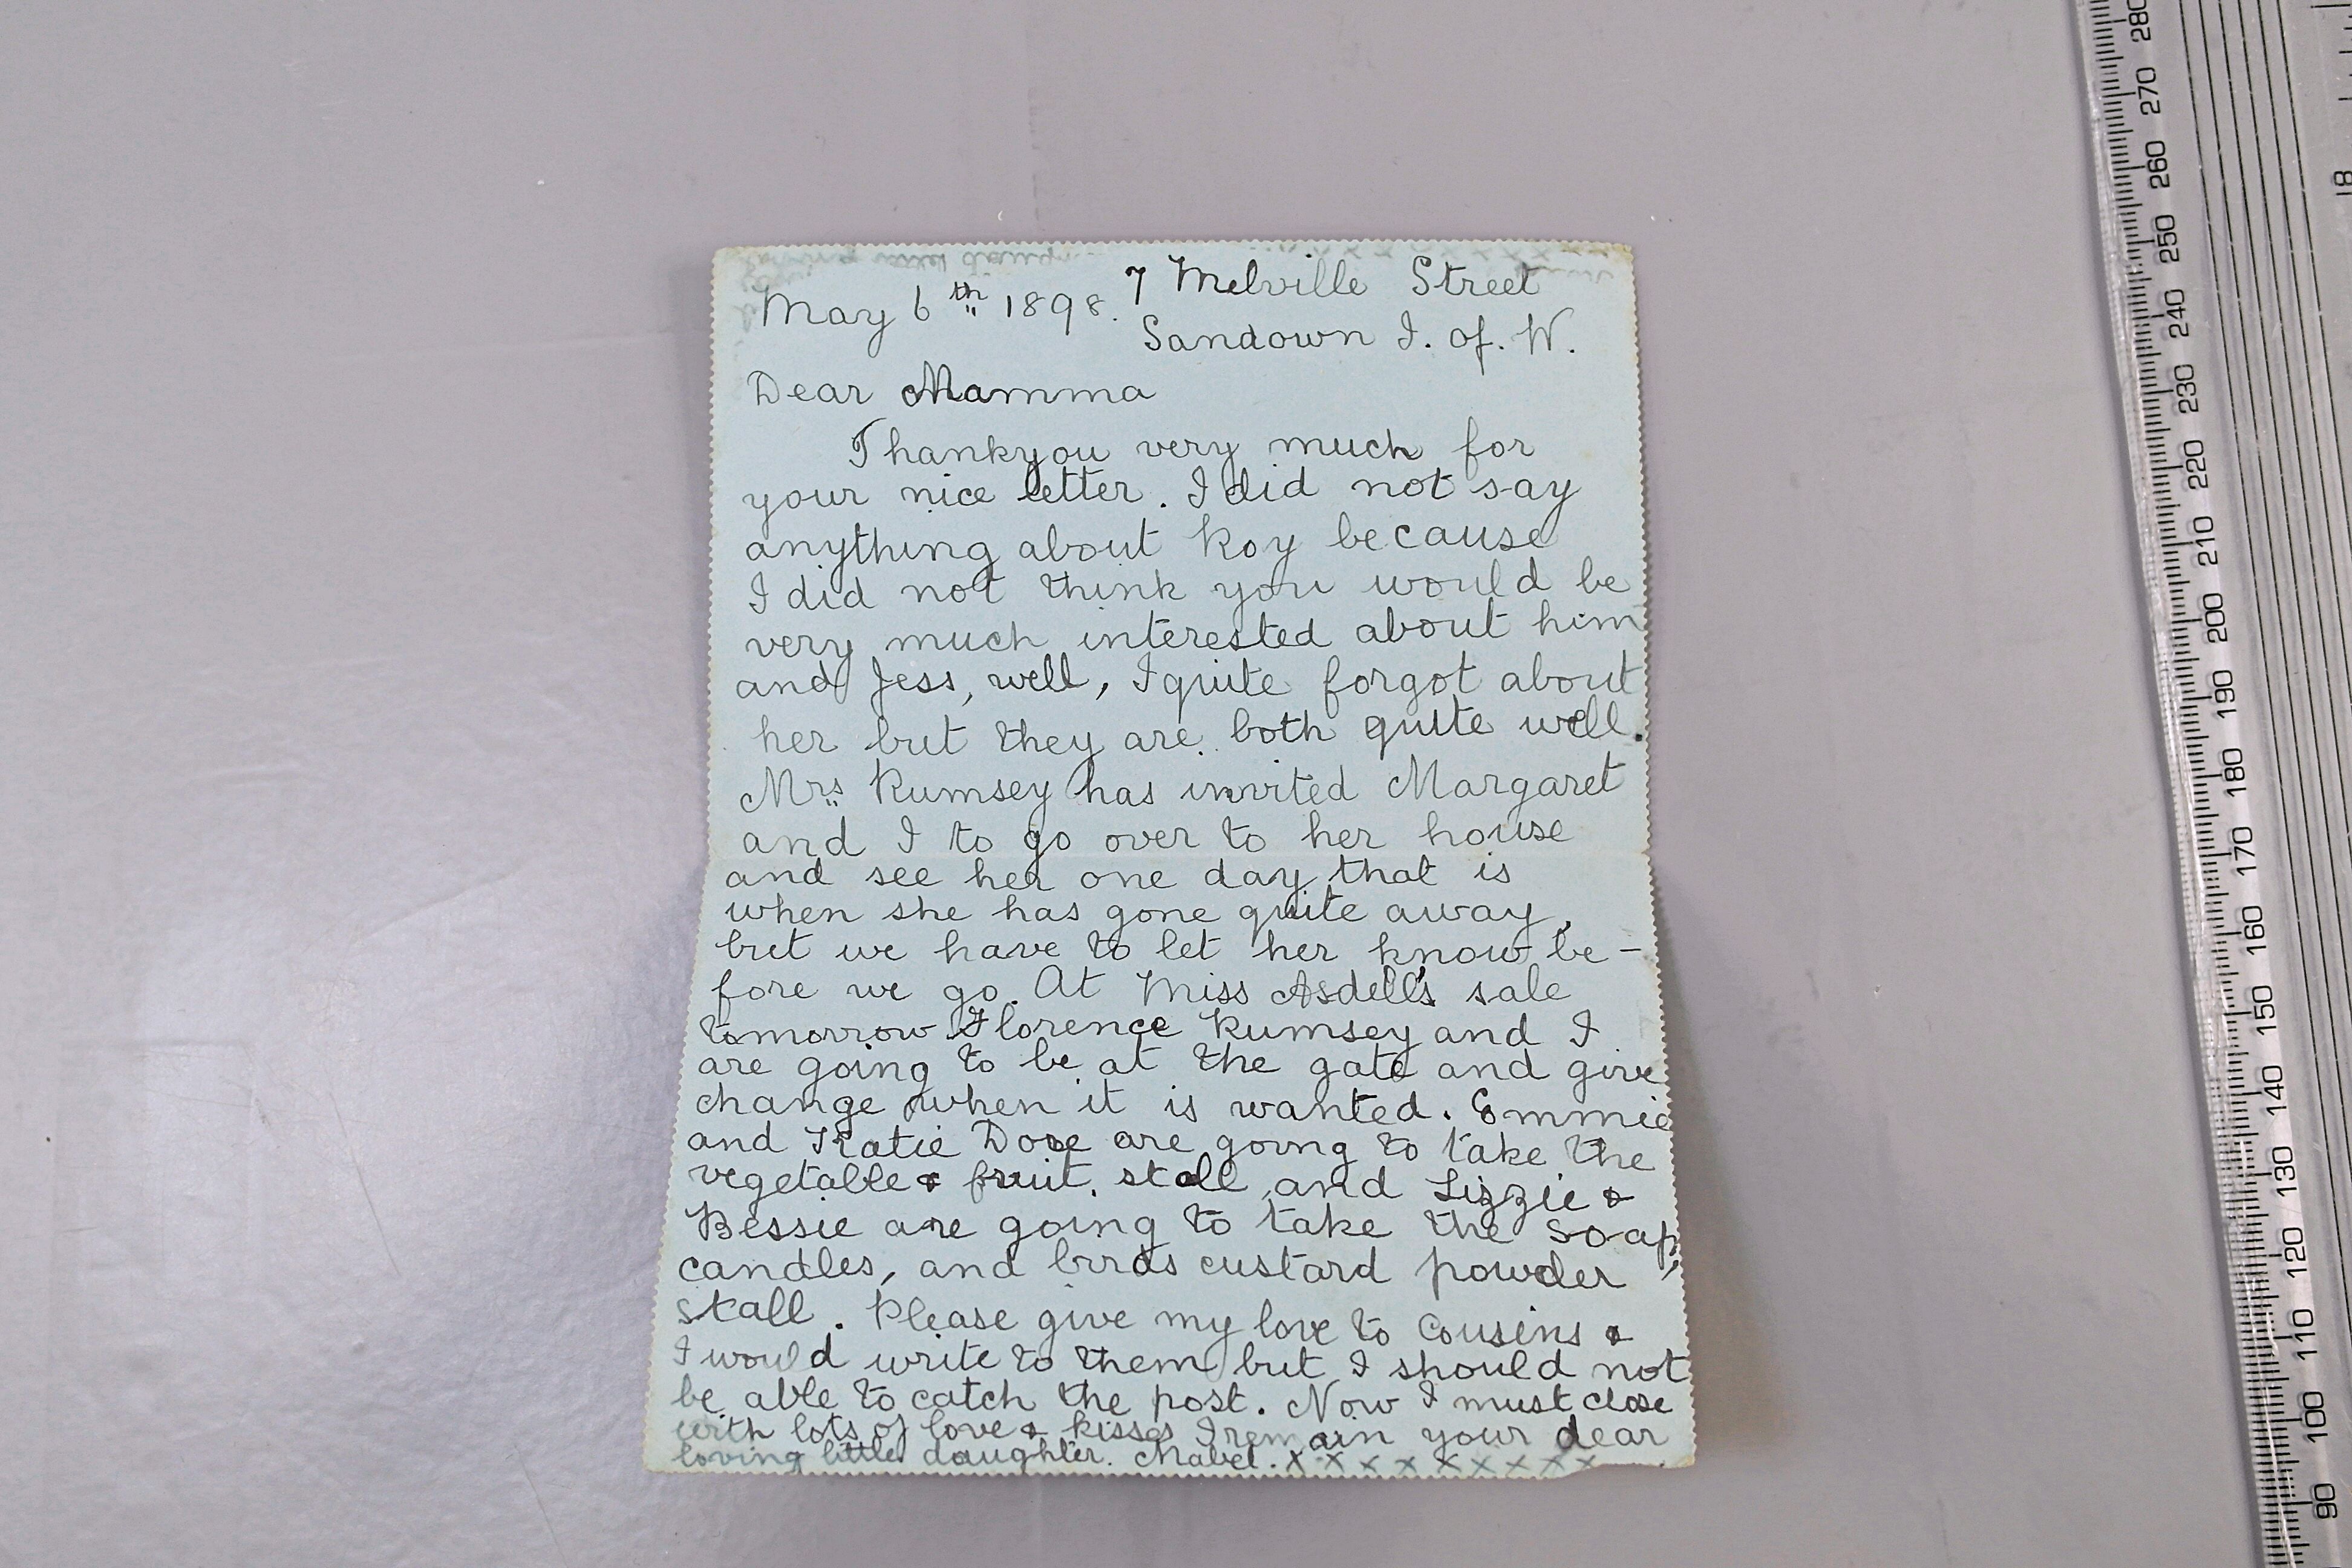 7 Melville Street
May 6th 1898.
Sandown I. of. W.
Dear Mamma
Thankyou very much for
your nice letter. I did not say
anything about Roy because
I did not think you would be
very much interested about him
and Jess, well, I quite forgot about
her but they are both quite well.
Mrs Rumsey has invited Margaret
and I to go over to her house
and see her one day that is
when she has gone quite away,
but we have to let her know be-
fore we go. At Miss Asdell's sale
tomorrow Florence Rumsey and I
are going to be at the gate and give
change when it is wanted. Emmie
and Katie Dore are going to take the
vegetable & fruit stall and Lizzie &
Bessie are going to take the soap,
candles, and birds custard powder
stall. Please give my love to Cousins &
I would write to them but I should not
be able to catch the post. Now I must close
with lots of love & kisses I remain your dear
loving little daughter. Mabel. x x x x x x x x x
280
270
260
250
240
230
220
210
200
190
180
170
160
150
140
130
120
110
100
90
18